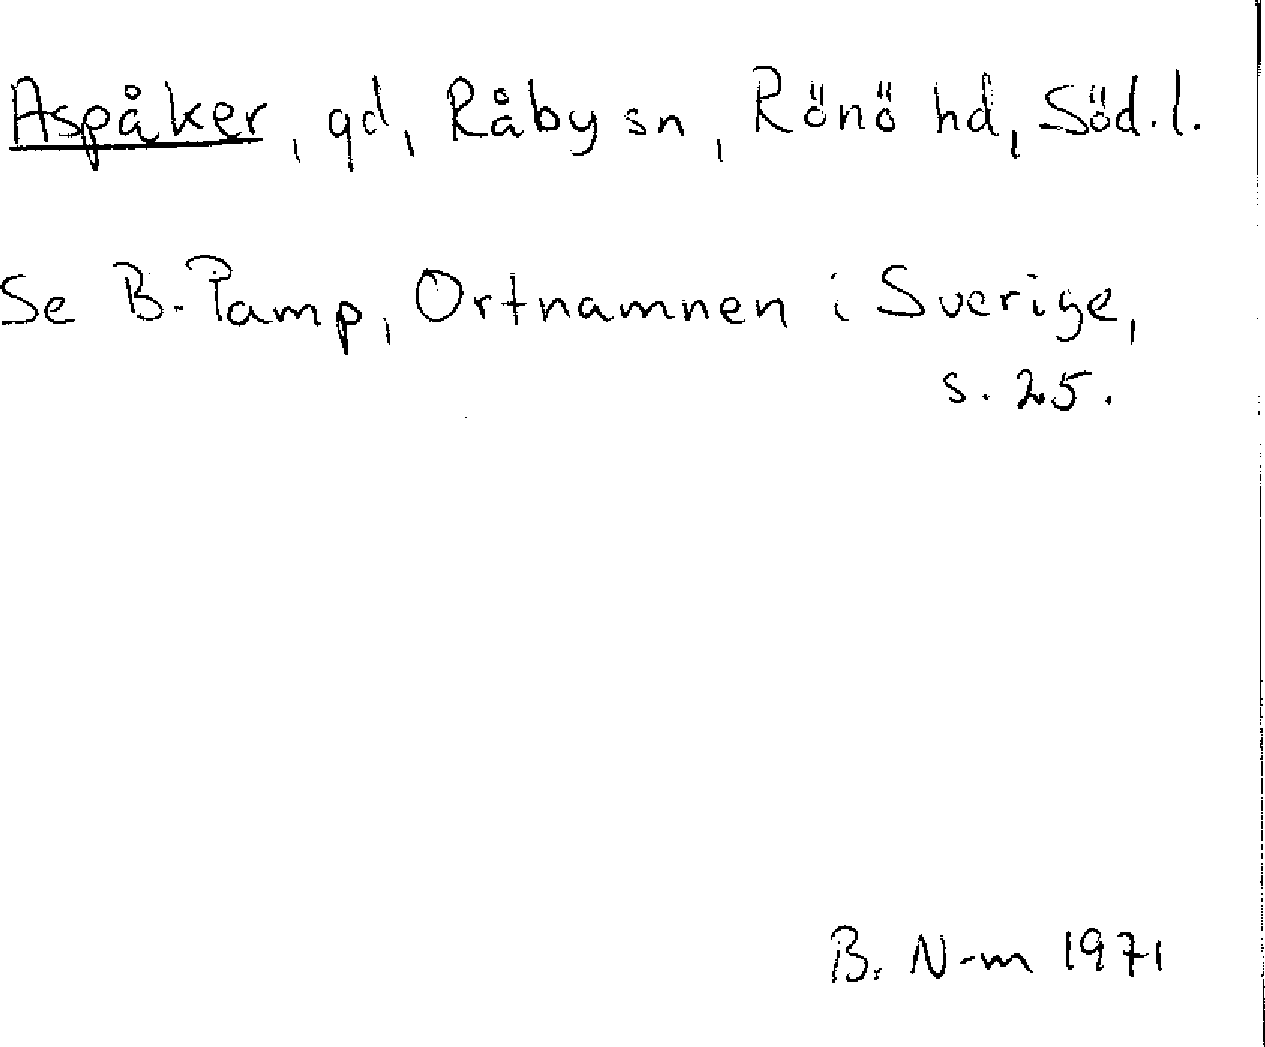 Aspåker, gd, Råby sn, Rönö hd, Söd.l.
Se B. Pamp, Ortnamnen i Sverige,
s. 25.
B. N-m 1971